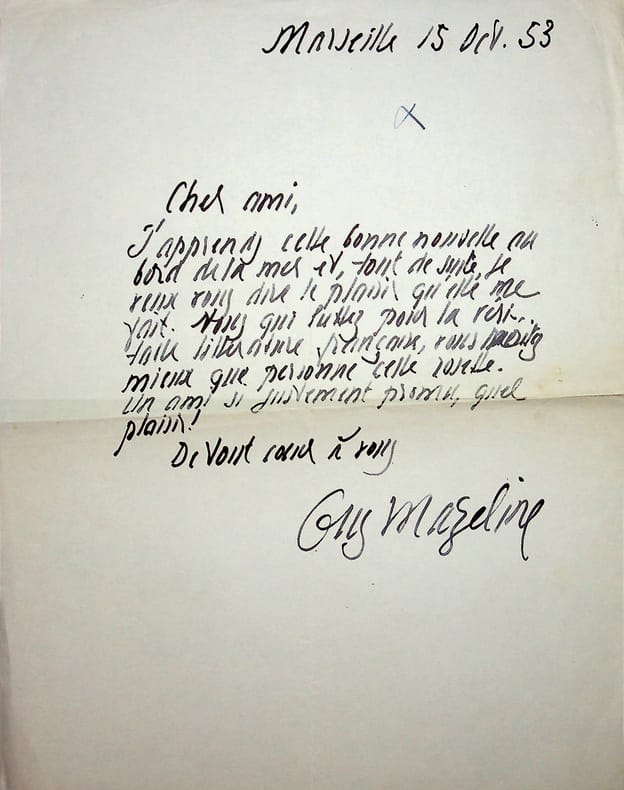 Marseille 15 Oct. 53
Cher ami,
J'apprends cette bonne nouvelle au
bord de la mer et, tout de suite, je
veux vous dire le plaisir qu'elle me
fait. Vous qui luttez pour la véri-
table littérature française, vous méritez
mieux que personne cette rosette.
Un ami si justement promu, quel
plaisir!
De tout cœur à vous
Guy Mazeline